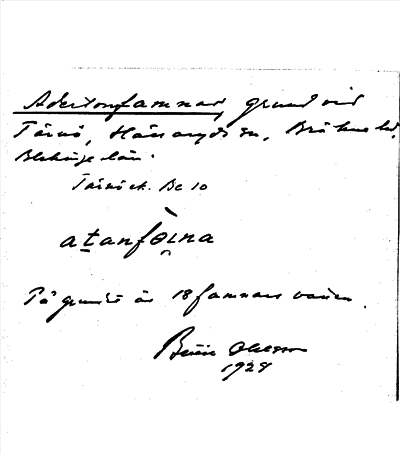 Adertonfamnar, grund vid
Tärnö, Hällaryds sn, Bräkne hd,
Blekinge län.
Tärnö ek. Bc 10
atanfὸι̮na
På grundet är 18 famnars vatten.
Börje Olsson
1928